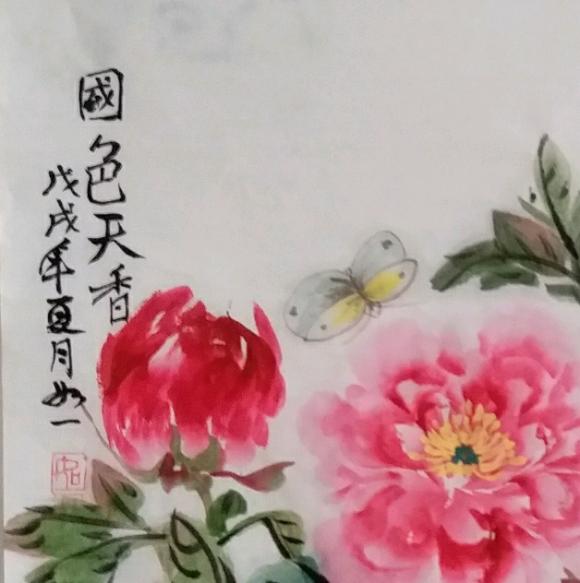 國色天香
戊戌年夏月如一